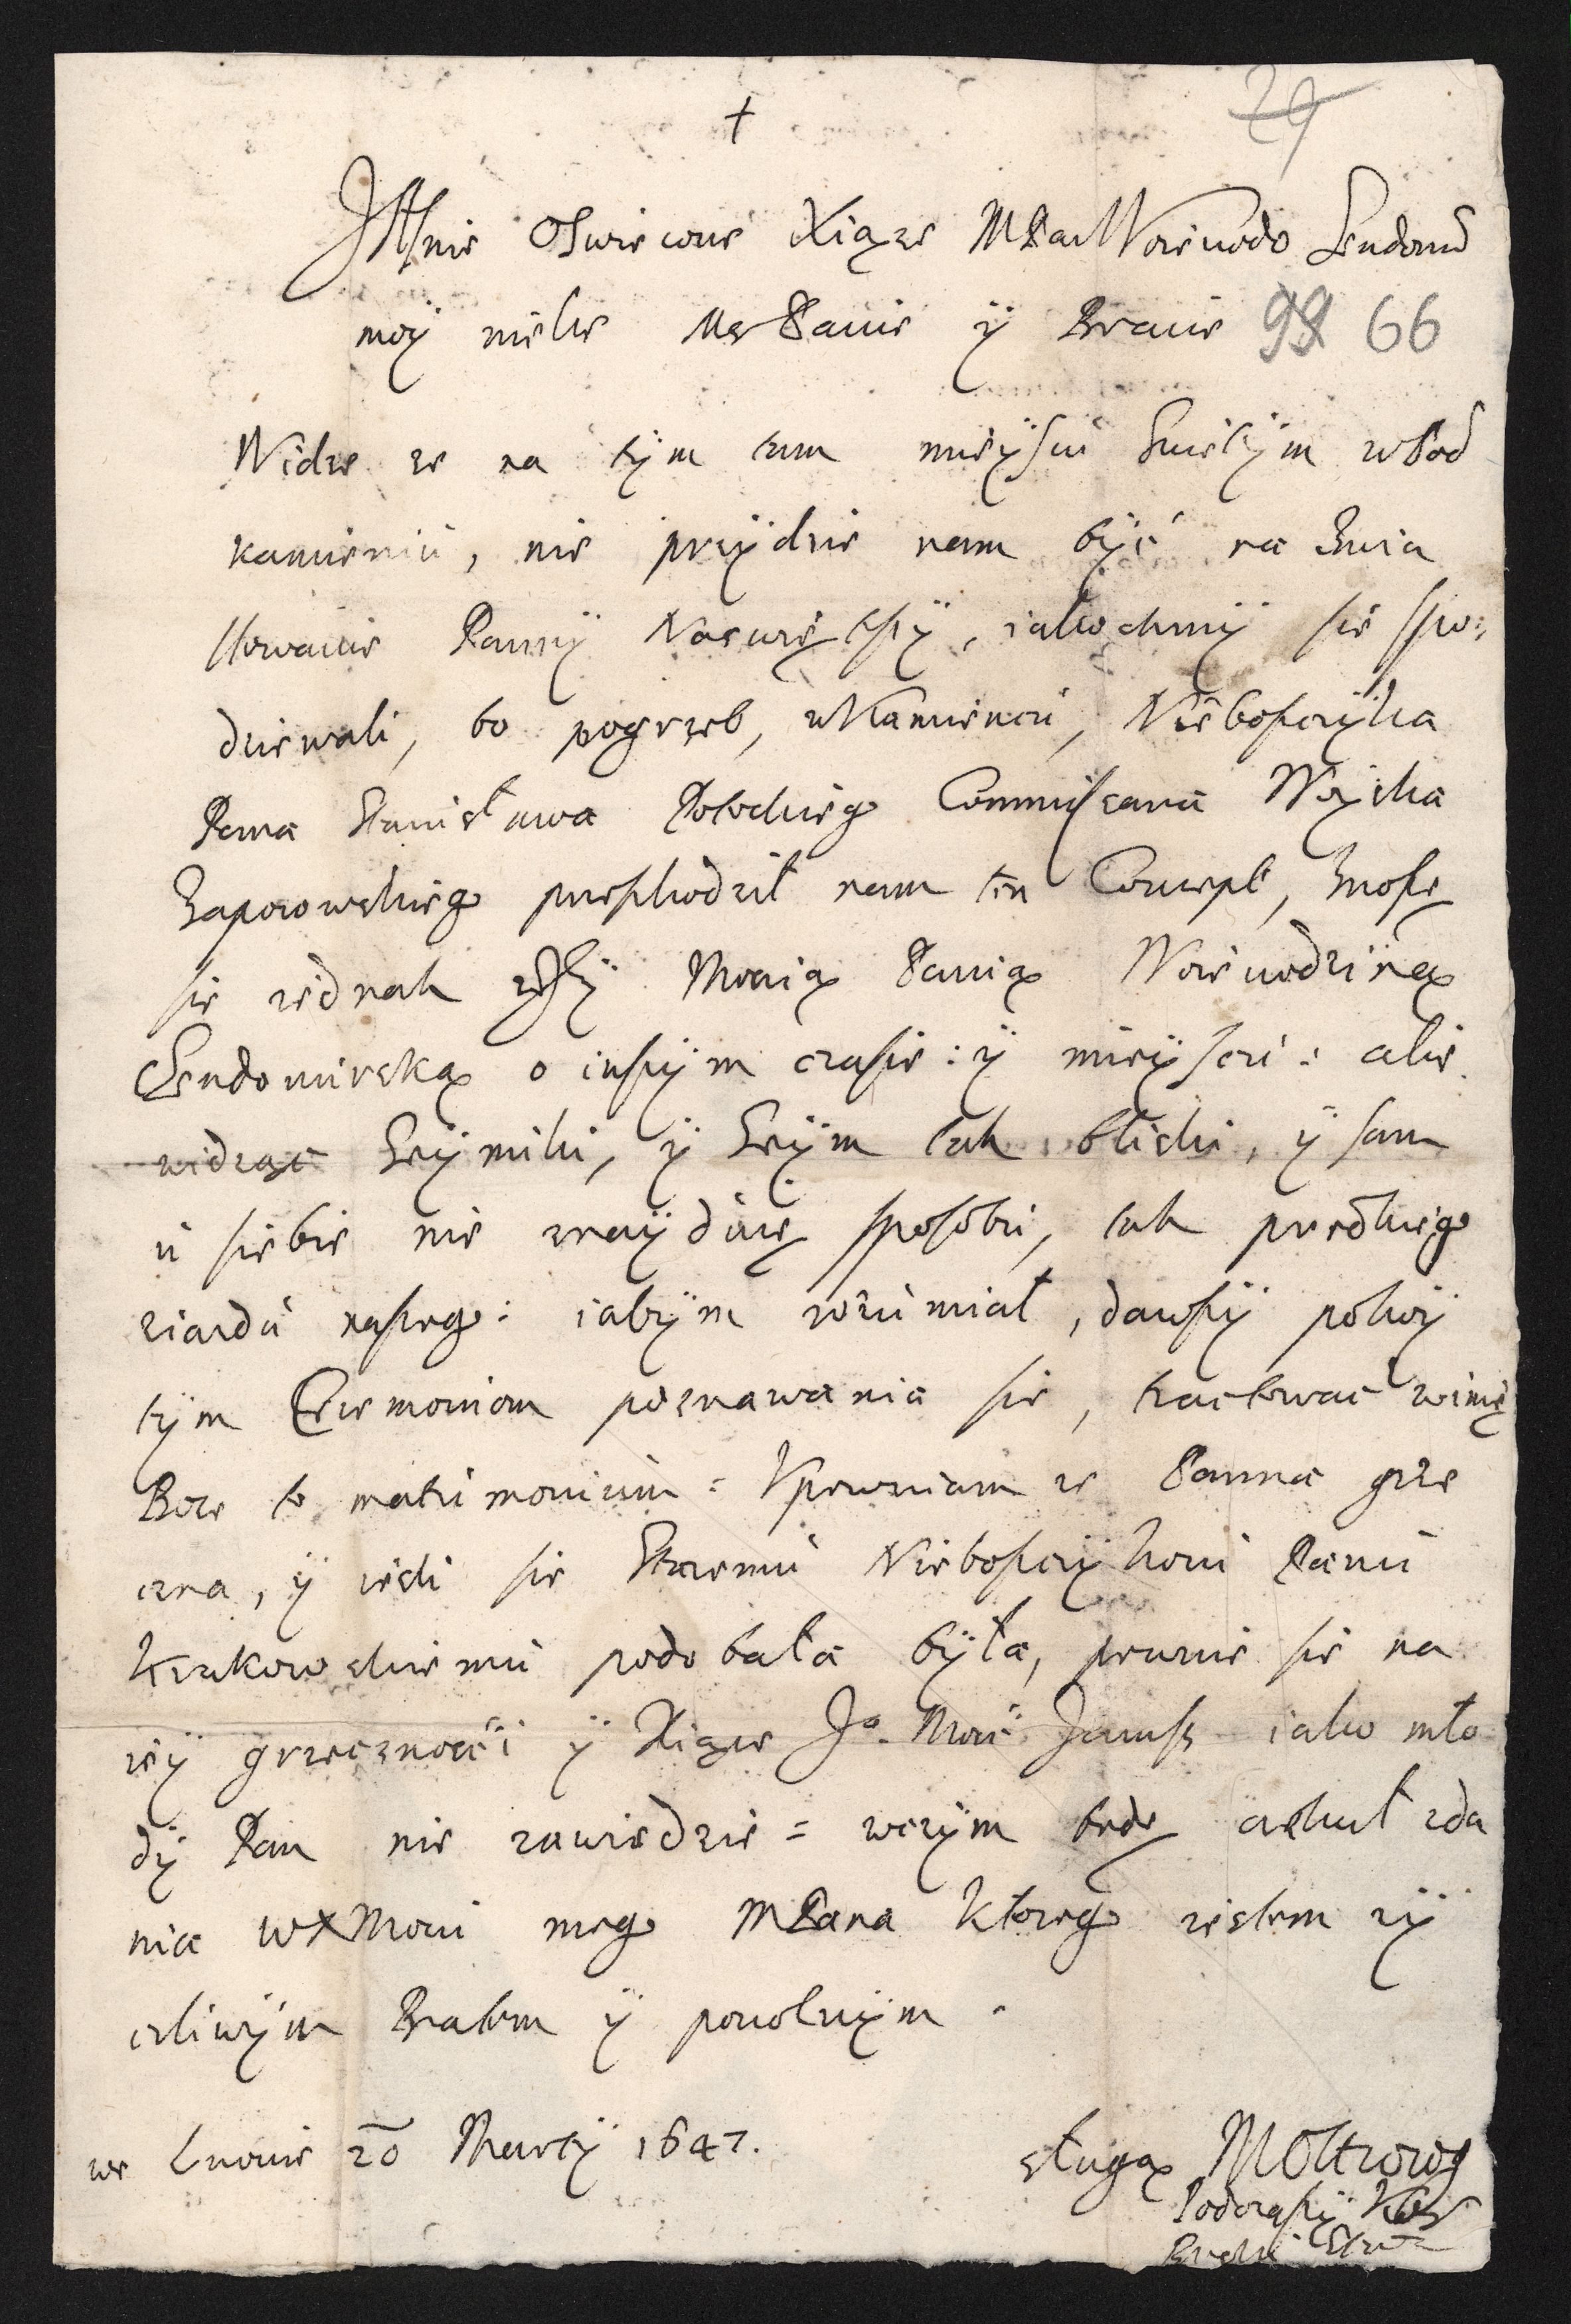 †
29
JAsnie Oswiecone Xiąze MPan Woiewodo Sendom
moy wielce Mc Panie y Bracie 98 66
Widze ze na tym tam mieyscu Swietym w Pod
kamieniu, nie przydzie nam być na Zwia
stowanie Panny Naswiętszy, iakochmy sie spo:
dziewali, bo pogrzeb, w Kamiencu, Nieboszczyka
Pana Stanisława Potockiego Commissarza Woyska
Zaporowskiego przeszkodził nam ten Concept, znoszę
sie iednak z Jey Mocią Panią Woiewodziną
Sendomirską o inszym czasie: y mieyscu: alie
widząc Seymiki, y Seym tak bliski, y sam
u siebie nie znayduię sposobu, tak prędkiego
ziazdu naszego: iabym rozumiał, dawszy pokoy
tym Ceremoniom poznawania sie, tractować w imię
Boze to matrimonium: Vpewniam ze Panna grze
czna, y iesli sie Staremu Nieboszczykowi Panu
Krakowskiemu podobała była, pewnie sie na
iey grzecznosci y Xiąze Jo. Mość Janusz iako mło
dy Pan nie zawiedzie: w czym będę czekał zda
nia WXMosci mego MPana ktorego iestem zy
czliwym Bratem y powolnym.
we Lwowie 20 Marty 1647.
sługą MOstrorog
Podczaszy Kor